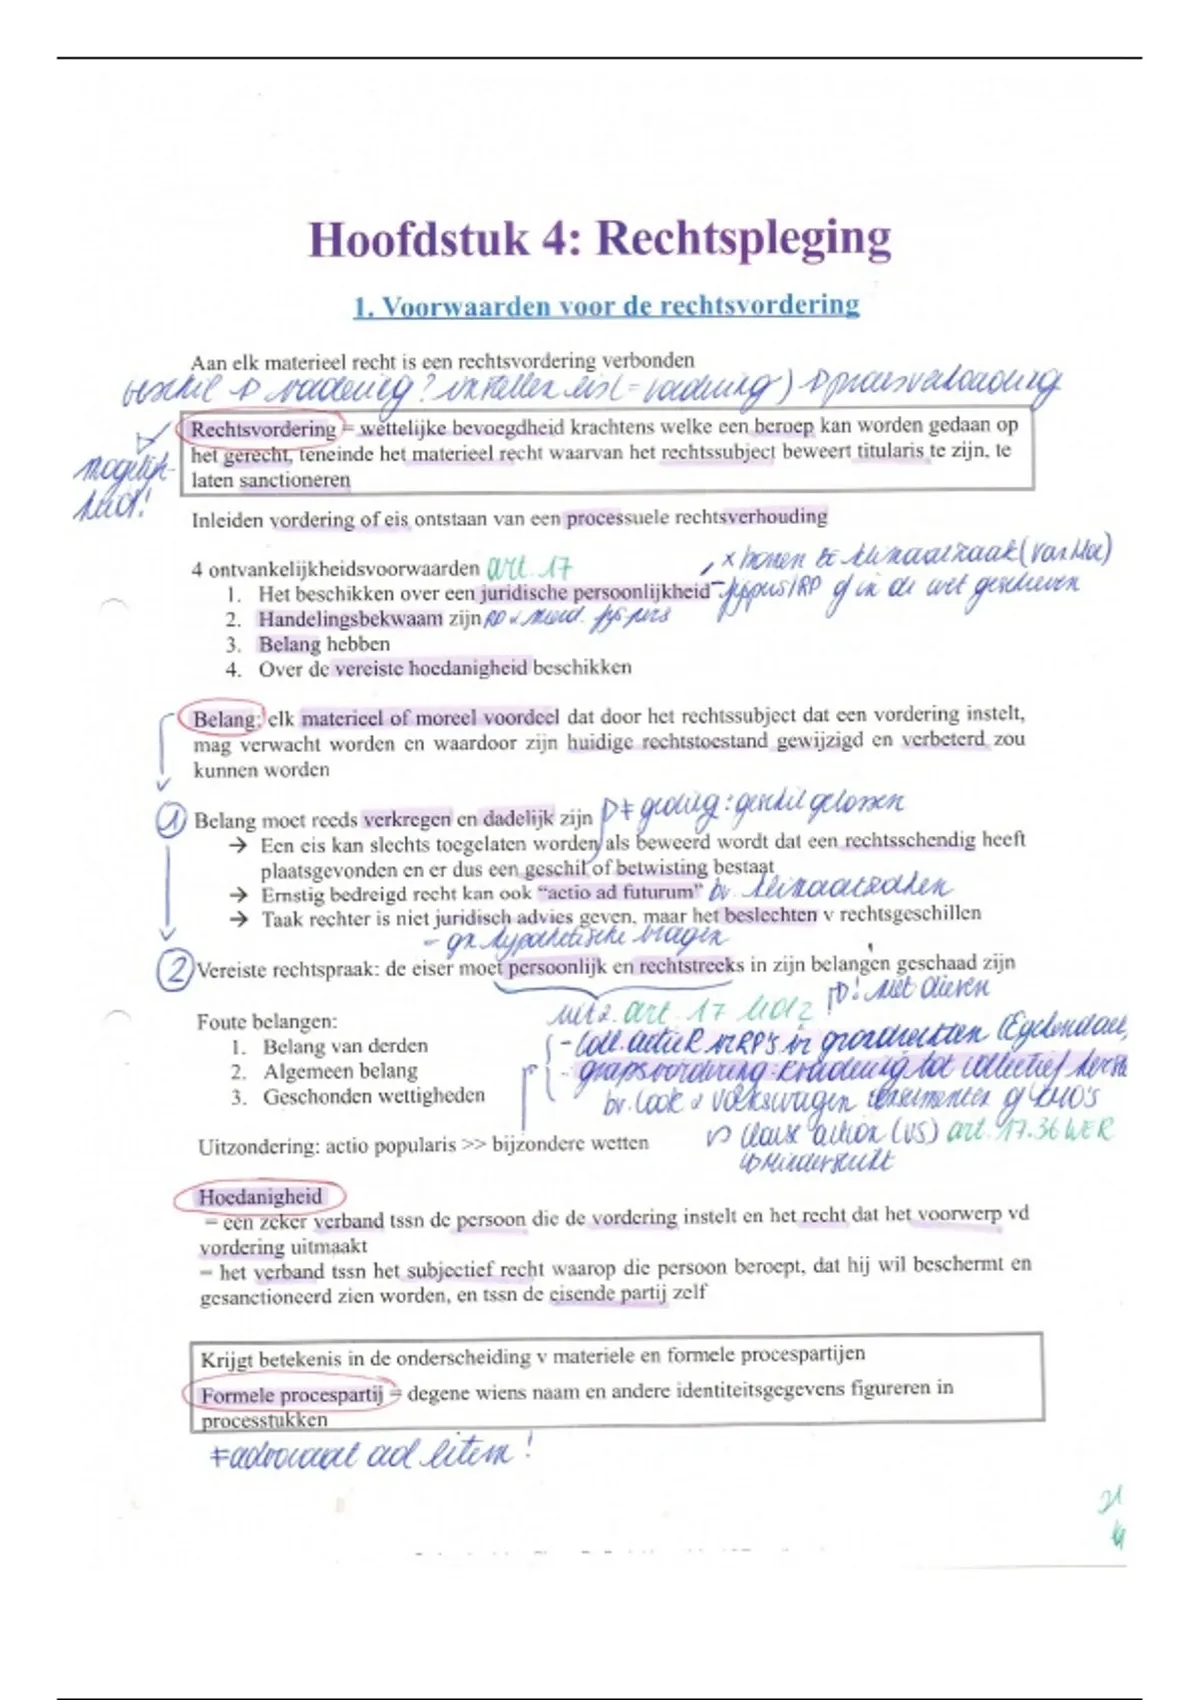 Hoofdstuk 4: Rechtspleging
1. Voorwaarden voor de rechtsvordering
Aan elk materieel recht is een rechtsvordering verbonden
vordering? instellen eis (= vordering)
Rechtsvordering = wettelijke bevoegdheid krachtens welke een beroep kan worden gedaan op
het gerecht, teneinde het materieel recht waarvan het rechtssubject beweert titularis te zijn, te
laten sanctioneren
mogelijk-
heid!
Inleiden vordering of eis ontstaan van een processuele rechtsverhouding
4 ontvankelijkheidsvoorwaarden art. 17
x bomen & klimaatzaak
1. Het beschikken over een juridische persoonlijkheid - fypers/RP of in de wet geschreven
2. Handelingsbekwaam zijn RP & meerd. fys pers
3. Belang hebben
4. Over de vereiste hoedanigheid beschikken
Belang: elk materieel of moreel voordeel dat door het rechtssubject dat een vordering instelt,
mag verwacht worden en waardoor zijn huidige rechtstoestand gewijzigd en verbeterd zou
kunnen worden
1 Belang moet reeds verkregen en dadelijk zijn ≠ gedeig: geschil gelossen
→ Een eis kan slechts toegelaten worden als beweerd wordt dat een rechtsschendig heeft
plaatsgevonden en er dus een geschil of betwisting bestaat
→ Ernstig bedreigd recht kan ook "actio ad futurum" bv. klimaatzaken
→ Taak rechter is niet juridisch advies geven, maar het beslechten v rechtsgeschillen
- gn hypothetische vragen
2 Vereiste rechtspraak: de eiser moet persoonlijk en rechtstreeks in zijn belangen geschaad zijn
! niet dieren
art. 17 lid 2
Foute belangen:
1. Belang van derden
2. Algemeen belang
3. Geschonden wettigheden
- coll. actie R v RP's ir grondrechten
- groepsvordering: tot collectief herste
bv. Cook & Volkswagen consumenten of KMO's
Uitzondering: actio popularis >> bijzondere wetten
clause action (VS) art. 17.36 WER
Hoedanigheid
= een zeker verband tssn de persoon die de vordering instelt en het recht dat het voorwerp vd
vordering uitmaakt
= het verband tssn het subjectief recht waarop die persoon beroept, dat hij wil beschermt en
gesanctioneerd zien worden, en tssn de eisende partij zelf
Krijgt betekenis in de onderscheiding v materiele en formele procespartijen
Formele procespartij = degene wiens naam en andere identiteitsgegevens figureren in
processtukken
≠ advocaat ad litem!
21
4